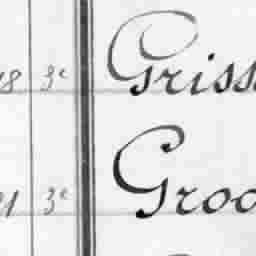 18 3e Griss
21 3e Groo